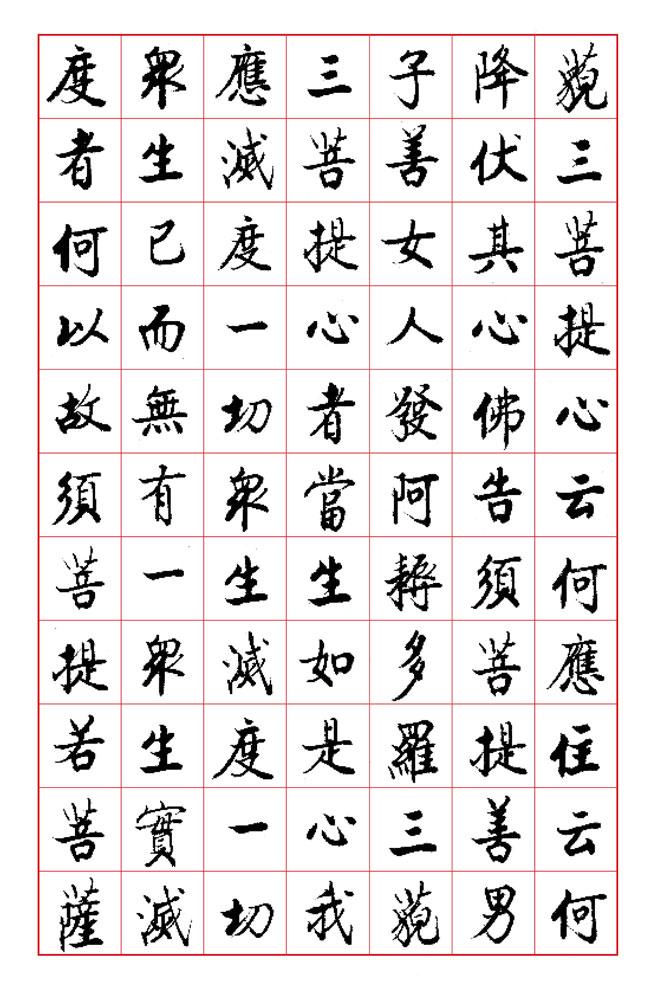 藐三菩提心云何應住云何
降伏其心佛告須菩提善男
子善女人發阿耨多羅三藐
三菩提心者當生如是心我
應滅度一切眾生滅度一切
眾生已而無有一眾生實滅
度者何以故須菩提若菩薩